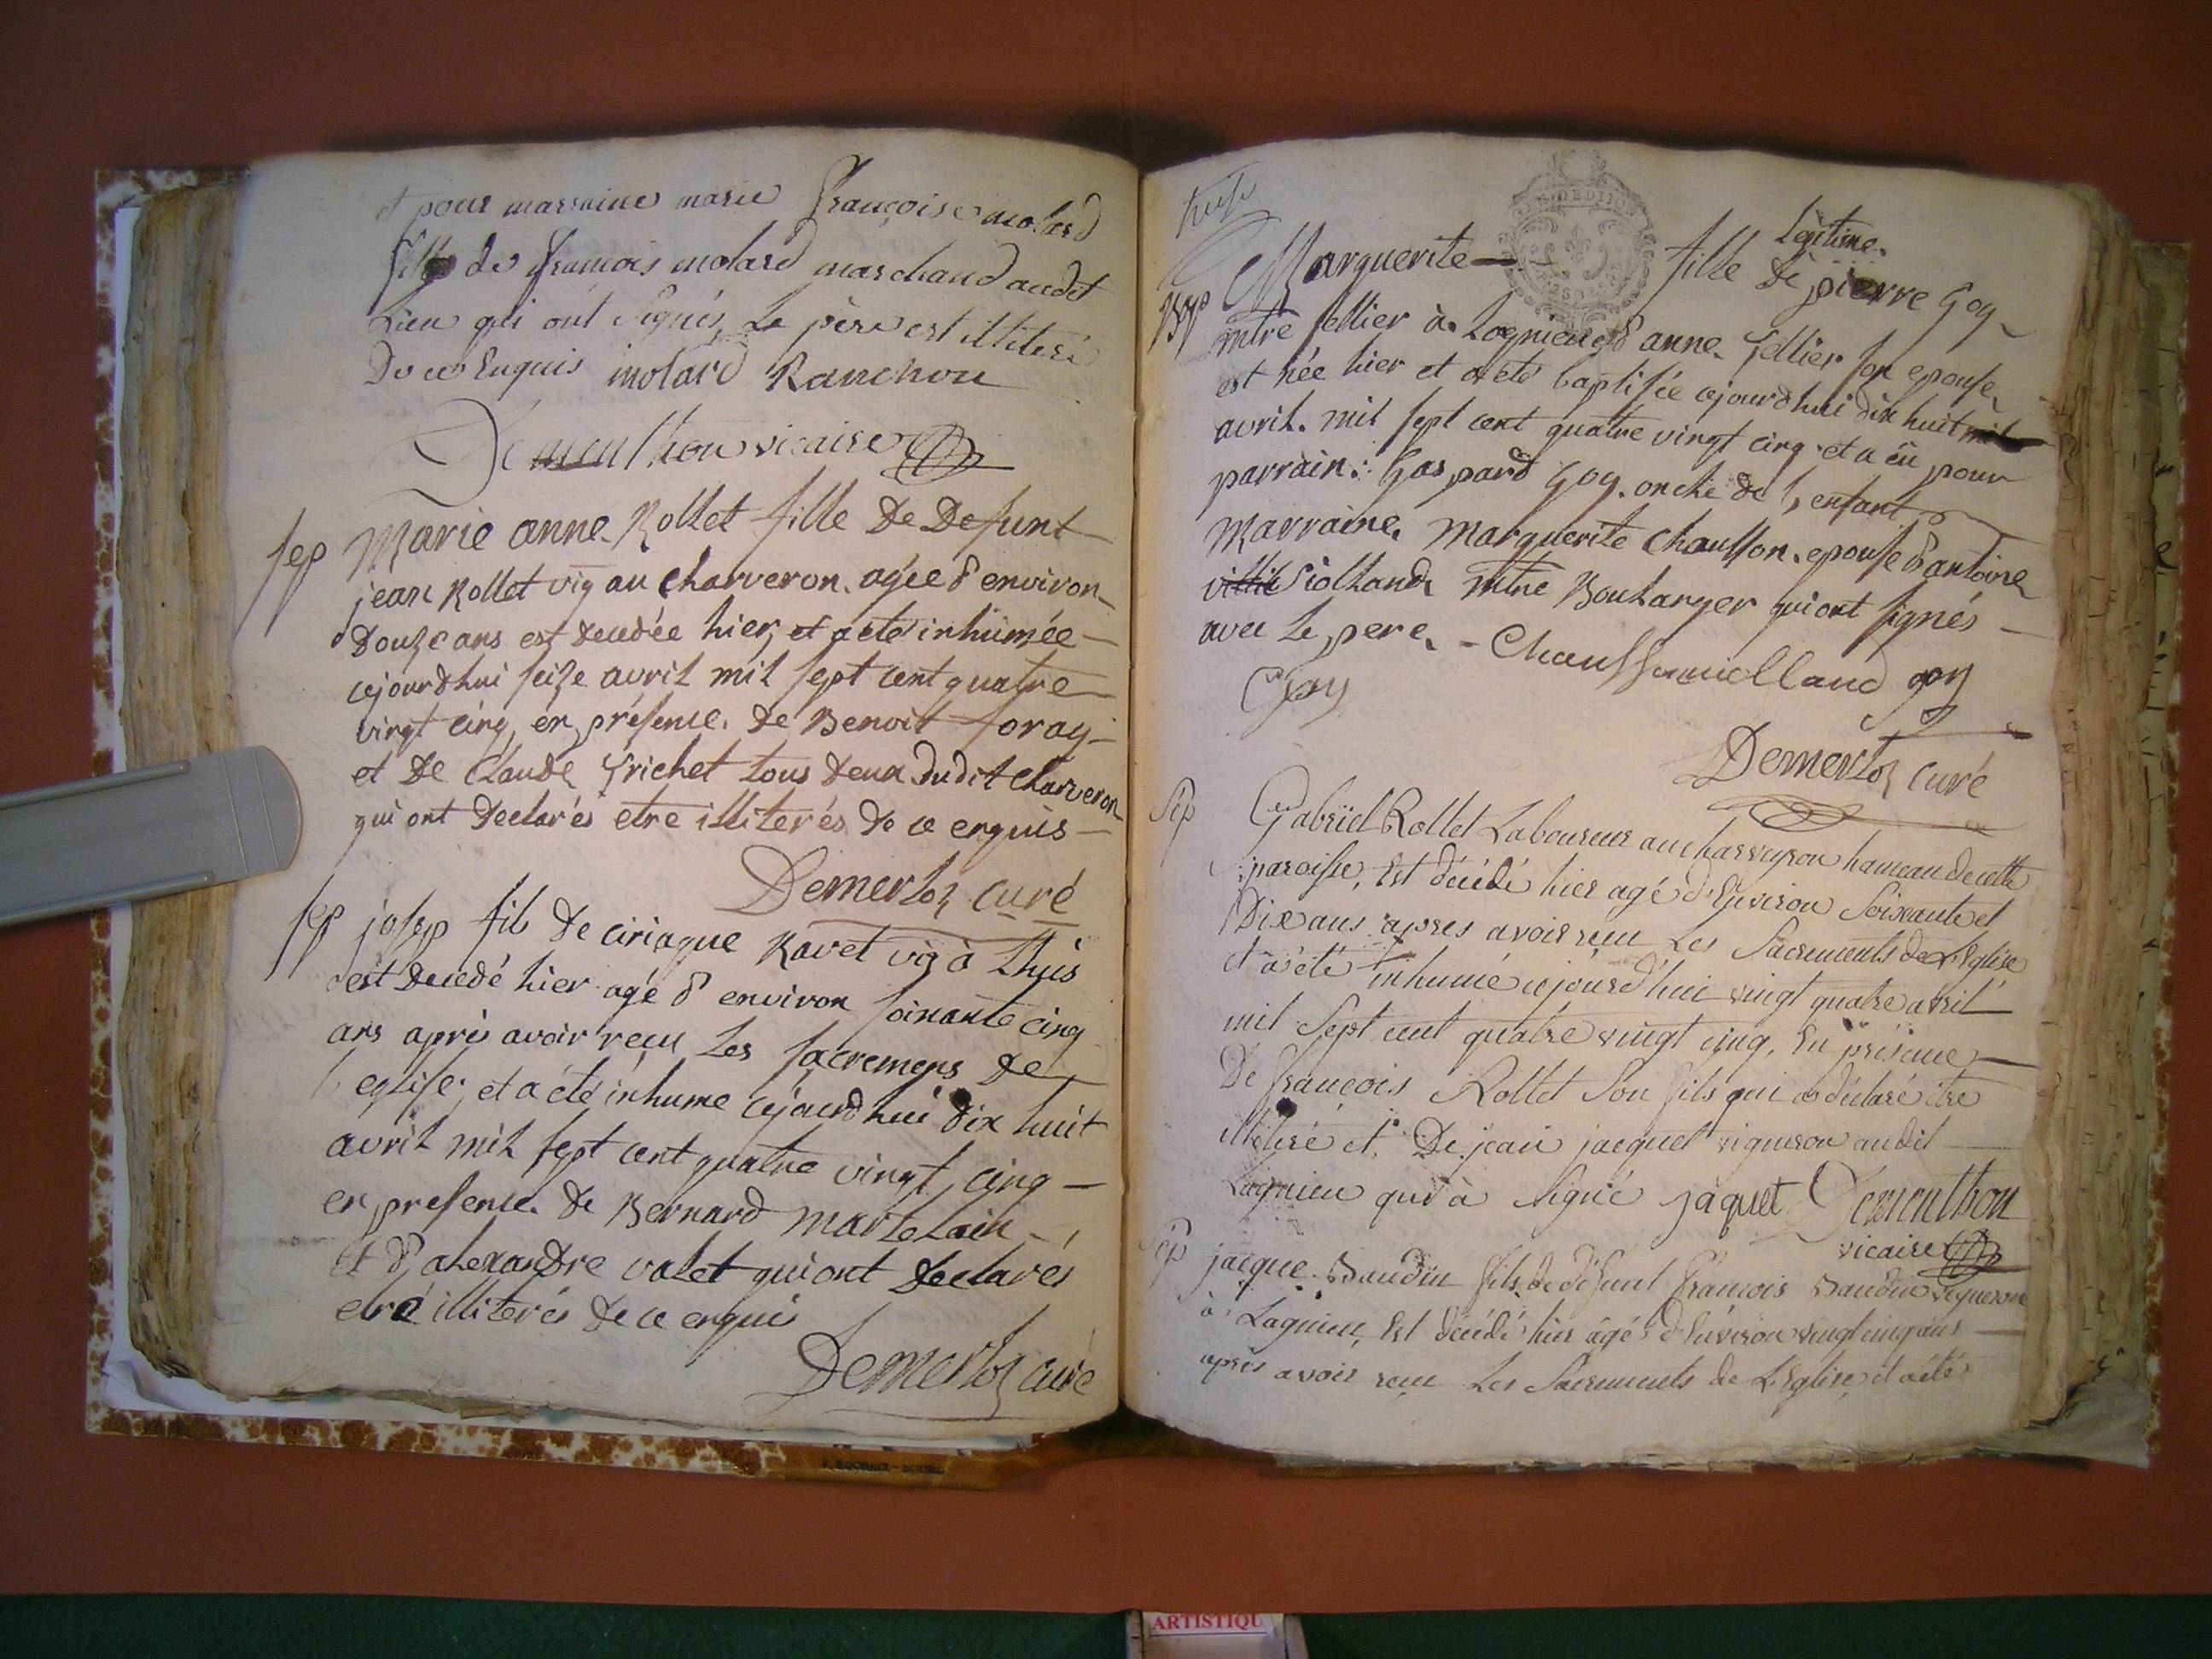 et pour marraine marie françoise molard
fille de françois molard marchand audit
Lieu qui ont signés, Le père est illiteré
De ce Enquis molard Ranchon
Dementhon vicaire
sep Marie anne Rollet fille De Defunt
jean Rollet vig au charveron. agée d'environ
Douze ans est decedée hier, et a eté inhumée
cejourdhui seize avril mil sept cent quatre
vingt cinq, en présence. de Benoit foray
et De Claude Trichet tous deux dudit charveron
qui ont declarés etre illiterés de ce enquis
Demerloz curé
sep josep fils de ciriaque Ravet vig à Lhuis
est decedé hier agé d'environ soixante cinq
ans après avoir reçu Les sacremens de
l'eglise, et a été inhume cejourdhui dix huit
avril mil sept cent quatre vingt cinq
en presence. de Bernard martelain
et d'alexandre valet qui ont Declarés
etre illiterés de ce enquis
Demerloz curé
Légitime.
Bp Marguerite fille De pierre Goy
mtre sellier à Lagnieu et d'anne. Tellier son epouse
est née hier et a eté baptisée cejourdhui dix huit mil
avril. mil sept cent quatre vingt cinq et a eü pour
parrain: Gaspard Goy. oncle de l'enfant
Marraine. Marguerite chausson. epouse d'antoine
Siolland mtre Boulanger qui ont signés
avec Le pere. - goy
Goy
Demerloz curé
Sep Gabriel Rollet Laboureur au charveyron hameau de cette
paroisse, Est décédé hier agé d'Environ soixante et
Dix ans après avoir reçu Les Sacrements de L'Eglise
et a été inhumé cejourd'hui vingt quatre avril
mil Sept cent quatre vingt cinq, En présence
De françois Rollet Son fils qui a déclaré être
illiteré et De jean jacquet vigneron audit
Lagnieu qui à signé jaquet Dementhon
vicaire
Sep jacque Baudin fils de défunt françois Baudin vigneron
à Lagnieu, Est décédé hier agé d'Environ vingt cinq ans
après avoir reçu Les Sacrements de L'Eglise, et a été
ARTISTIQU